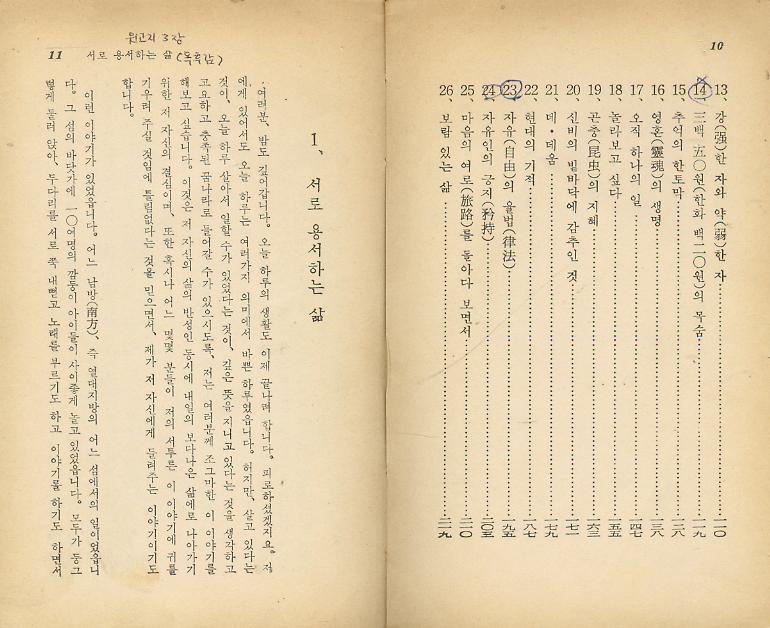 10
13、강(强)한 자와 약(弱)한 자……一一〇
14、三백 五〇원(한화 백二〇원)의 목숨……一一九
15、추억의 한토막……一二八
16、영혼(靈魂)의 생명……一三八
17、오직 하나의 일……一四七
18、놀라보고 싶다……一五五
19、곤충(昆虫)의 지혜……一六三
20、신비의 빌바닥에 감추인 것……一七一
21、데・데움……一七九
22、현대의 기적……一八七
23、자유(自由)의 율법(律法)……一九五
24、자유인의 긍지(矜持)……二〇五
25、마음의 여로(旅路)를 돌아다 보면서……二一〇
26、보람 있는 삶……二一九
원고지 3장
11 서로 용서하는 삶 (독촉감)
1、서로 용서하는 삶
여러분, 밤도 깊어갑니다. 오늘 하루의 생활도 이제 끝나려 합니다. 피로하셨겠지요. 저
에게 있어서도 오늘 하루는 여러가지 의미에서 바쁜 하루였읍니다. 허지만, 살고 있다는
것이, 오늘 하루 살아서 일할수가 있었다는 것이, 깊은 뜻을 지니고 있다는 것을 생각하고
고요하고 충족된 꿈나라로 들어갈 수가 있으시도록, 저는 여러분께 조그마한 이 이야기를
해보고 싶습니다. 이것은 저 자신의 삶의 반성인 동시에 내일의 보다나은 삶에로 나아가기
위한 저 자신의 결심이며, 또한 혹시나 어느 몇몇 분들이 저의 서투른 이 이야기에 귀를
기우려 주실 것임에 틀림없다는 것을 믿으면서, 제가 저 자신에게 들려주는 이야기이기도
합니다.
이런 이야기가 있었읍니다. 어느 남방(南方)、즉 열대지방의 어느 섬에서의 일이었읍니
다. 그 섬의 바닷가에 一〇여명의 깜둥이 아이들이 사이좋게 놀고 있었읍니다. 모두가 둥그
렇게 둘러 앉아, 두다리를 서로 쭉 내뻗고 노래를 부르기도 하고 이야기를 하기도 하면서